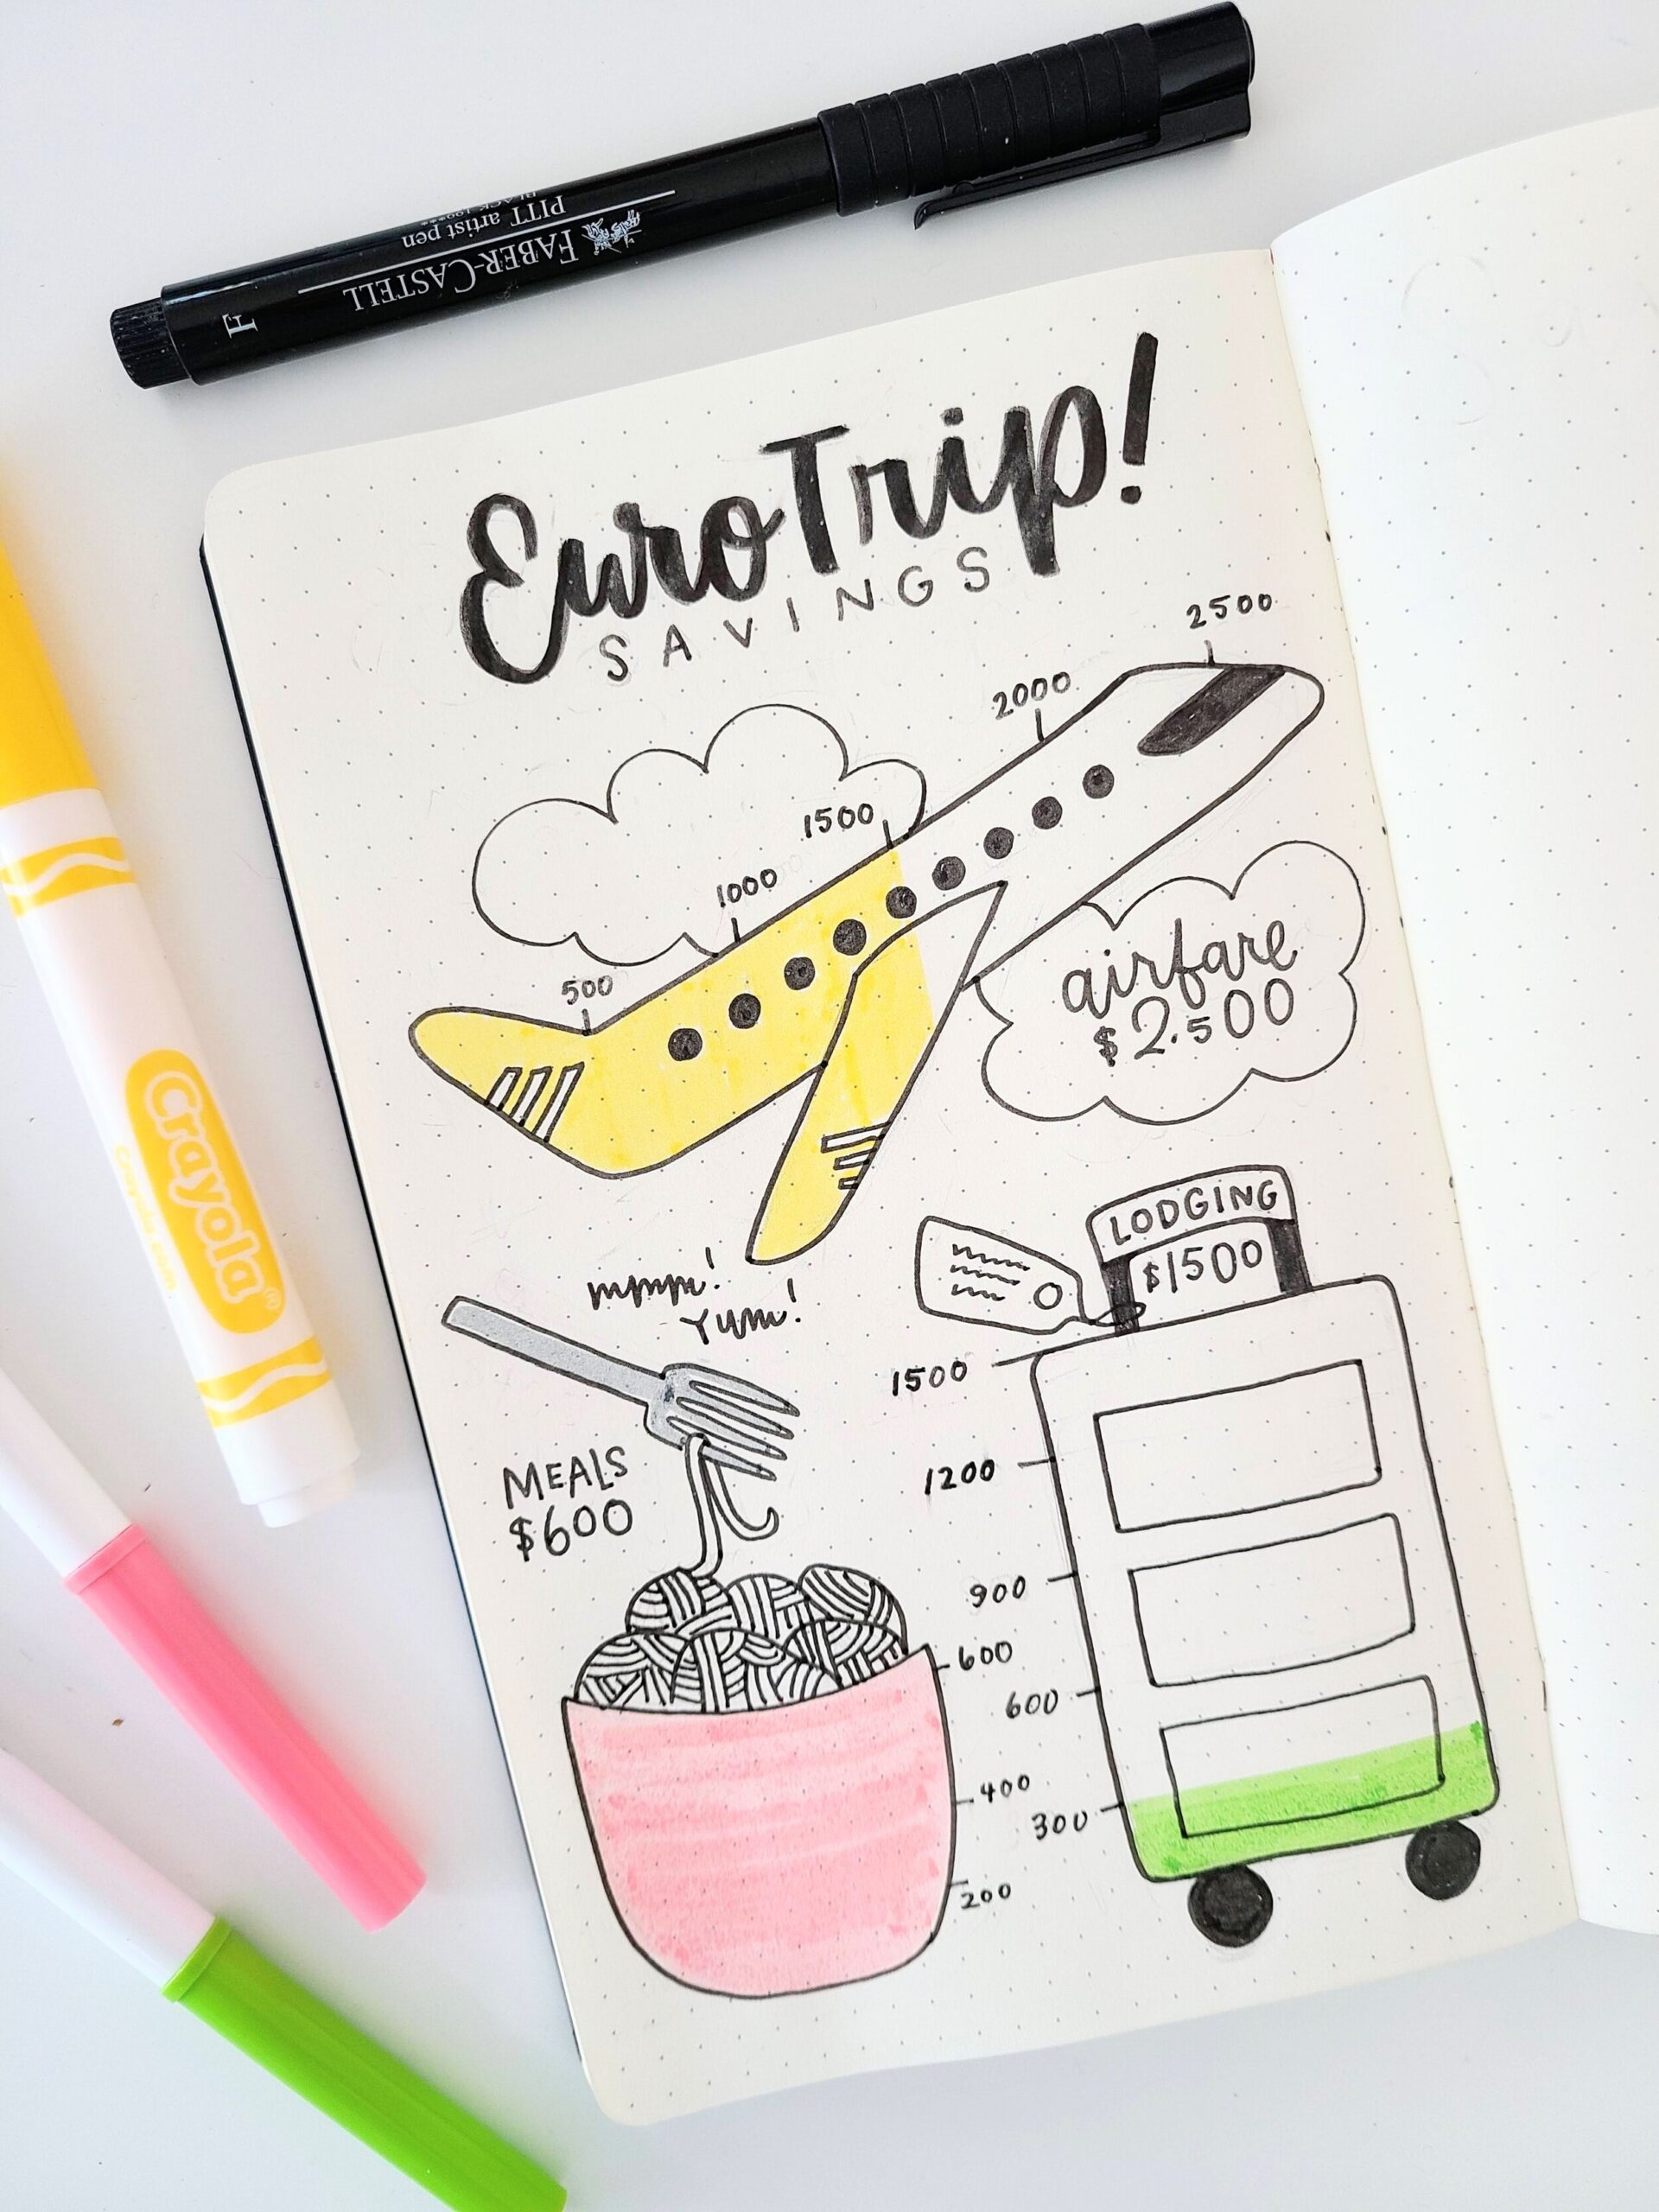 FABER-CASTELL
PITT artist pen
F
EuroTrip!
SAVINGS
2500
2000
1500
1000
500
airfare
$2.500
Crayola®
LODGING
$1500
mmm!
Yum!
MEALS
$600
1500
1200
900
600
300
600
400
200